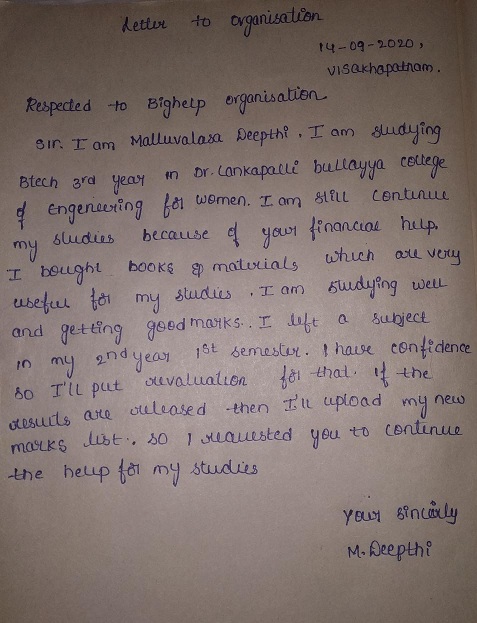 Letter to organisation
14-09-2020,
Visakhapatnam.
Respected to Bighelp organisation
Sir. I am Malluvalasa Deepthi. I am studying
Btech 3rd year in Dr. Lankapalli bullayya college
of Engeneering for women. I am still continue
my studies because of your financial help.
I bought books & materials which are very
useful for my studies. I am studying well
and getting good marks. I left a subject
in my 2nd year 1st semester. I have confidence
so I'll put revaluation for that. if the
results are released then I'll upload my new
marks list. so I requested you to continue
the help for my studies
Your sincerly
M. Deepthi